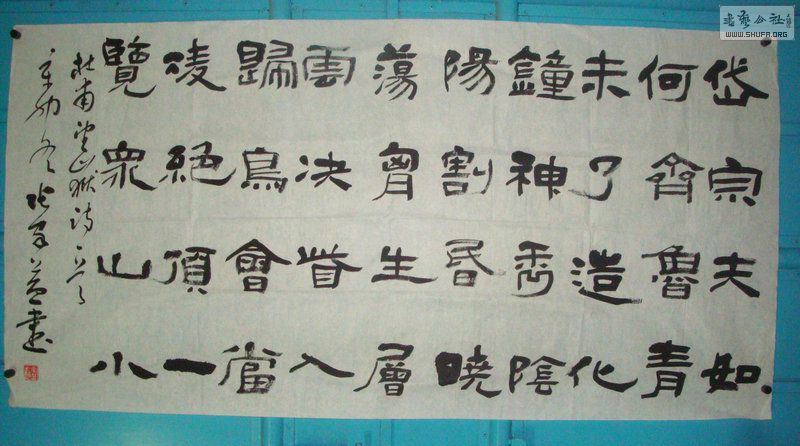 岱宗夫如
何齊魯青
未了造化
鐘神秀陰
陽割昏曉
蕩胷生層
雲決眥入
歸鳥會當
凌絕頂一
覽眾山小
杜甫望嶽詩一首
辛卯冬 書
書藝公社
WWW.SHUFA.ORG